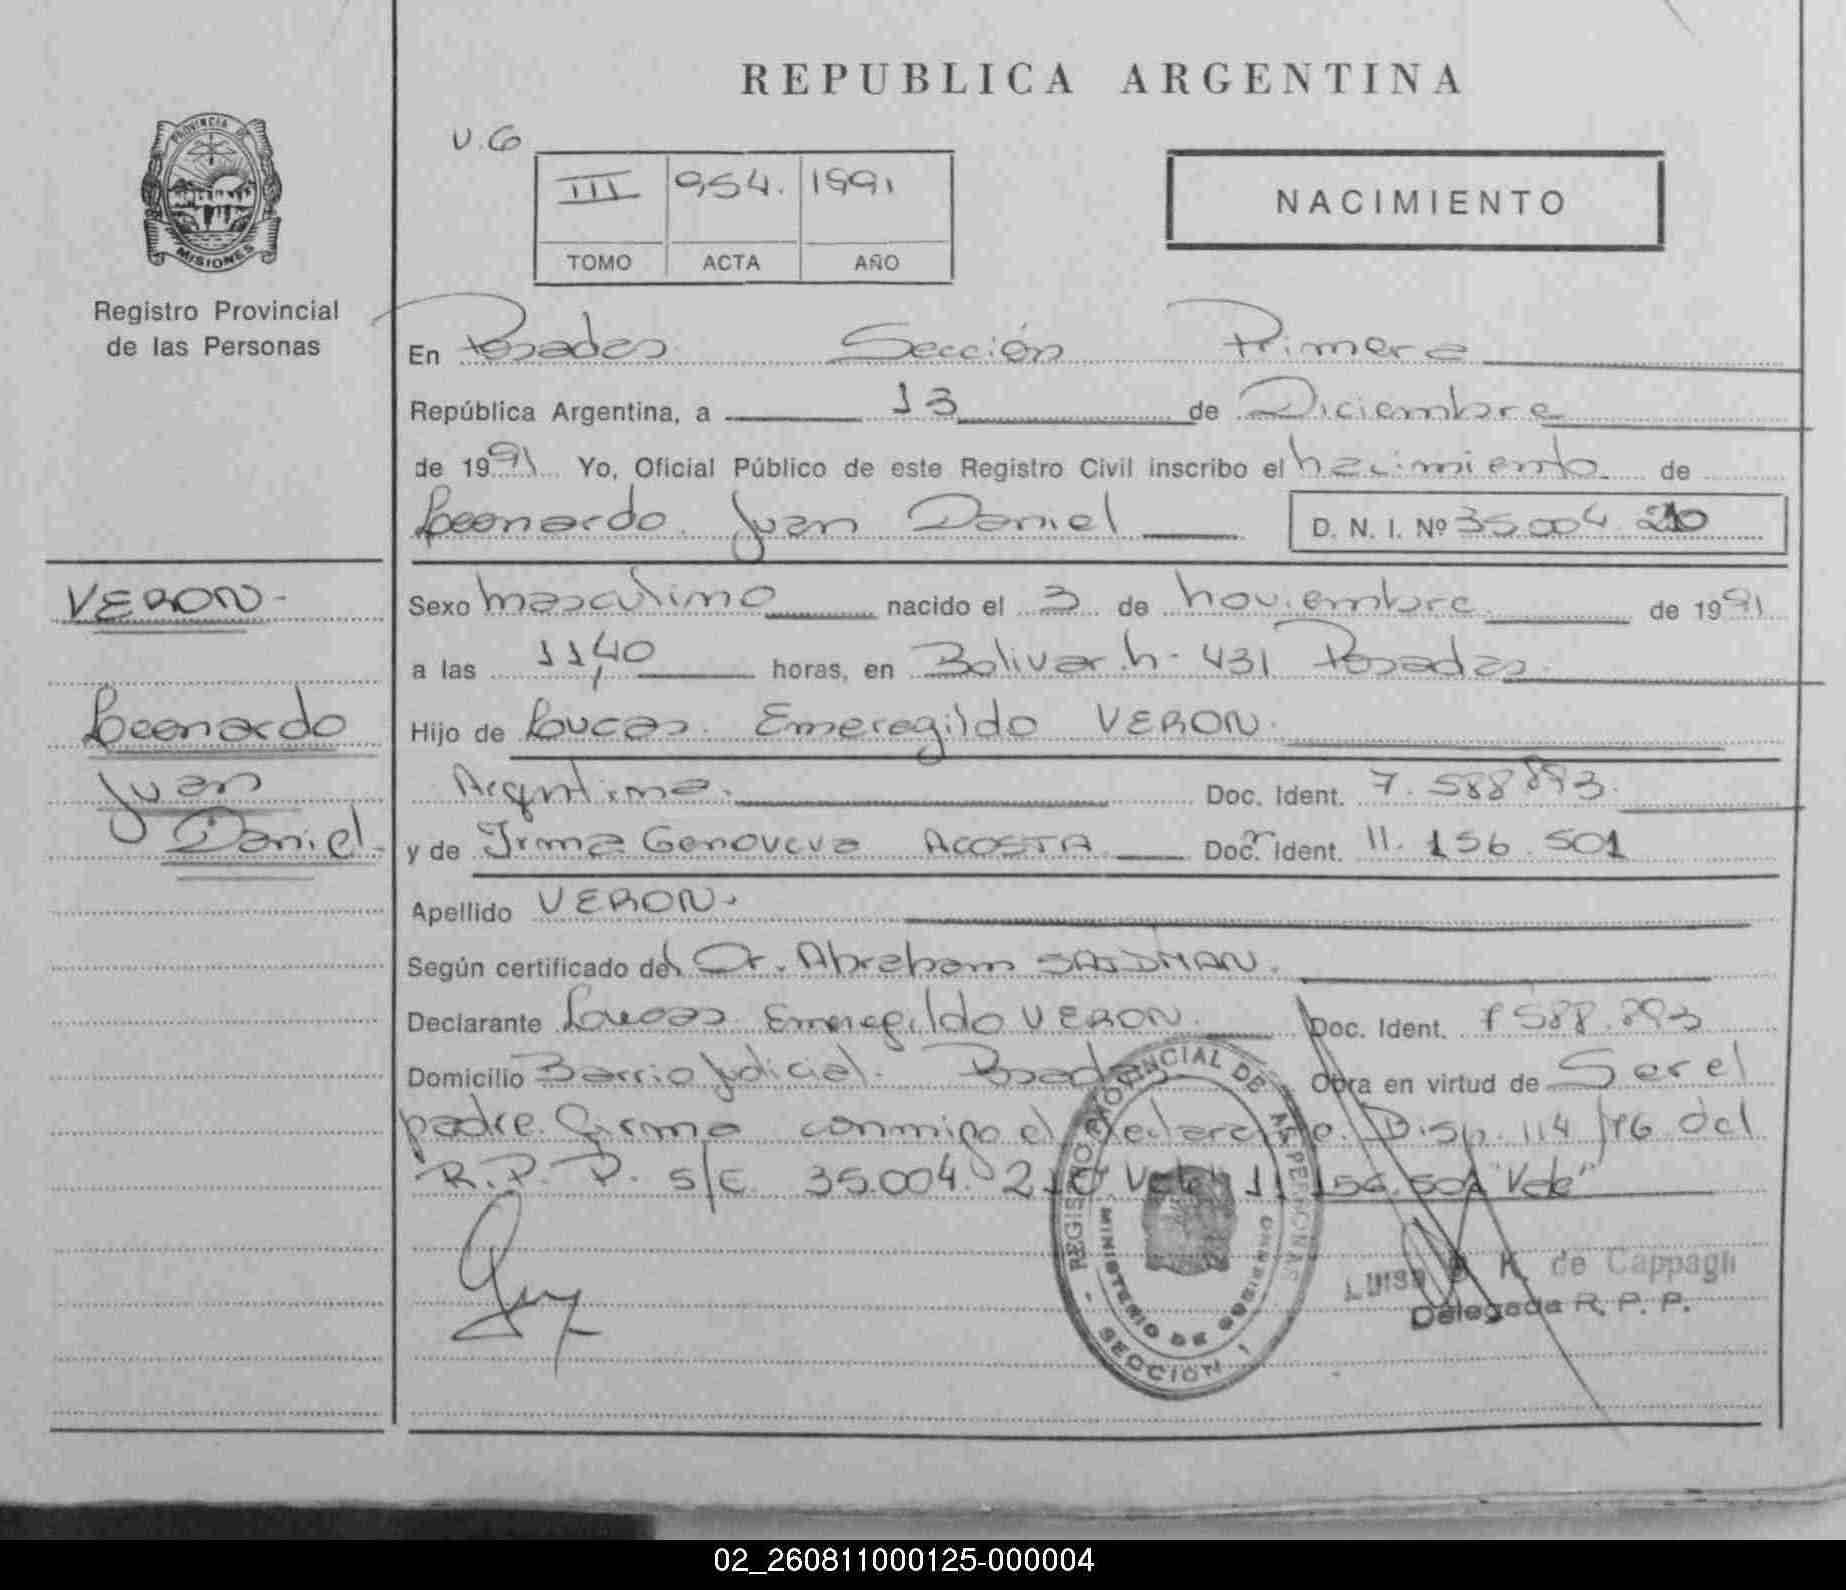 REPUBLICA ARGENTINA
PROVINCIA DE
MISIONES
Registro Provincial
de las Personas
V.G
III 954. 1991
TOMO ACTA AÑO
NACIMIENTO
En Posadas Sección Primera
República Argentina, a 13 de Diciembre
de 1991 Yo, Oficial Público de este Registro Civil inscribo el nacimiento de
Leonardo Juan Daniel D. N. I. Nº 35.004.210
VERON-
Leonardo
Juan
Daniel.
Sexo masculino nacido el 3 de noviembre de 1991
a las 11,40 horas, en Bolivar. h- 431 Posadas.
Hijo de Lucas. Emeregildo VERON.
Argentino. Doc. Ident. 7.588893.
y de Irma Genoveva ACOSTA Doc. Ident. 11.156.501
Apellido VERON.
Según certificado del Dr. Abraham SAIDMAN.
Declarante Lucas Emeregildo VERON. Doc. Ident. 7588.893
Domicilio Barrio Judicial. Posadas Obra en virtud de Ser el
padre. Firma conmigo el declarante. Disp. 114/76 del
R.P.P. s/c 35.004.210 Vale 11 156.501 "Vale"
REGISTRO PROVINCIAL DE LAS PERSONAS
MINISTERIO DE GOBIERNO
- SECCION 1
Luisa K. de Cappagli
Delegada R. P. P.
02_260811000125-000004